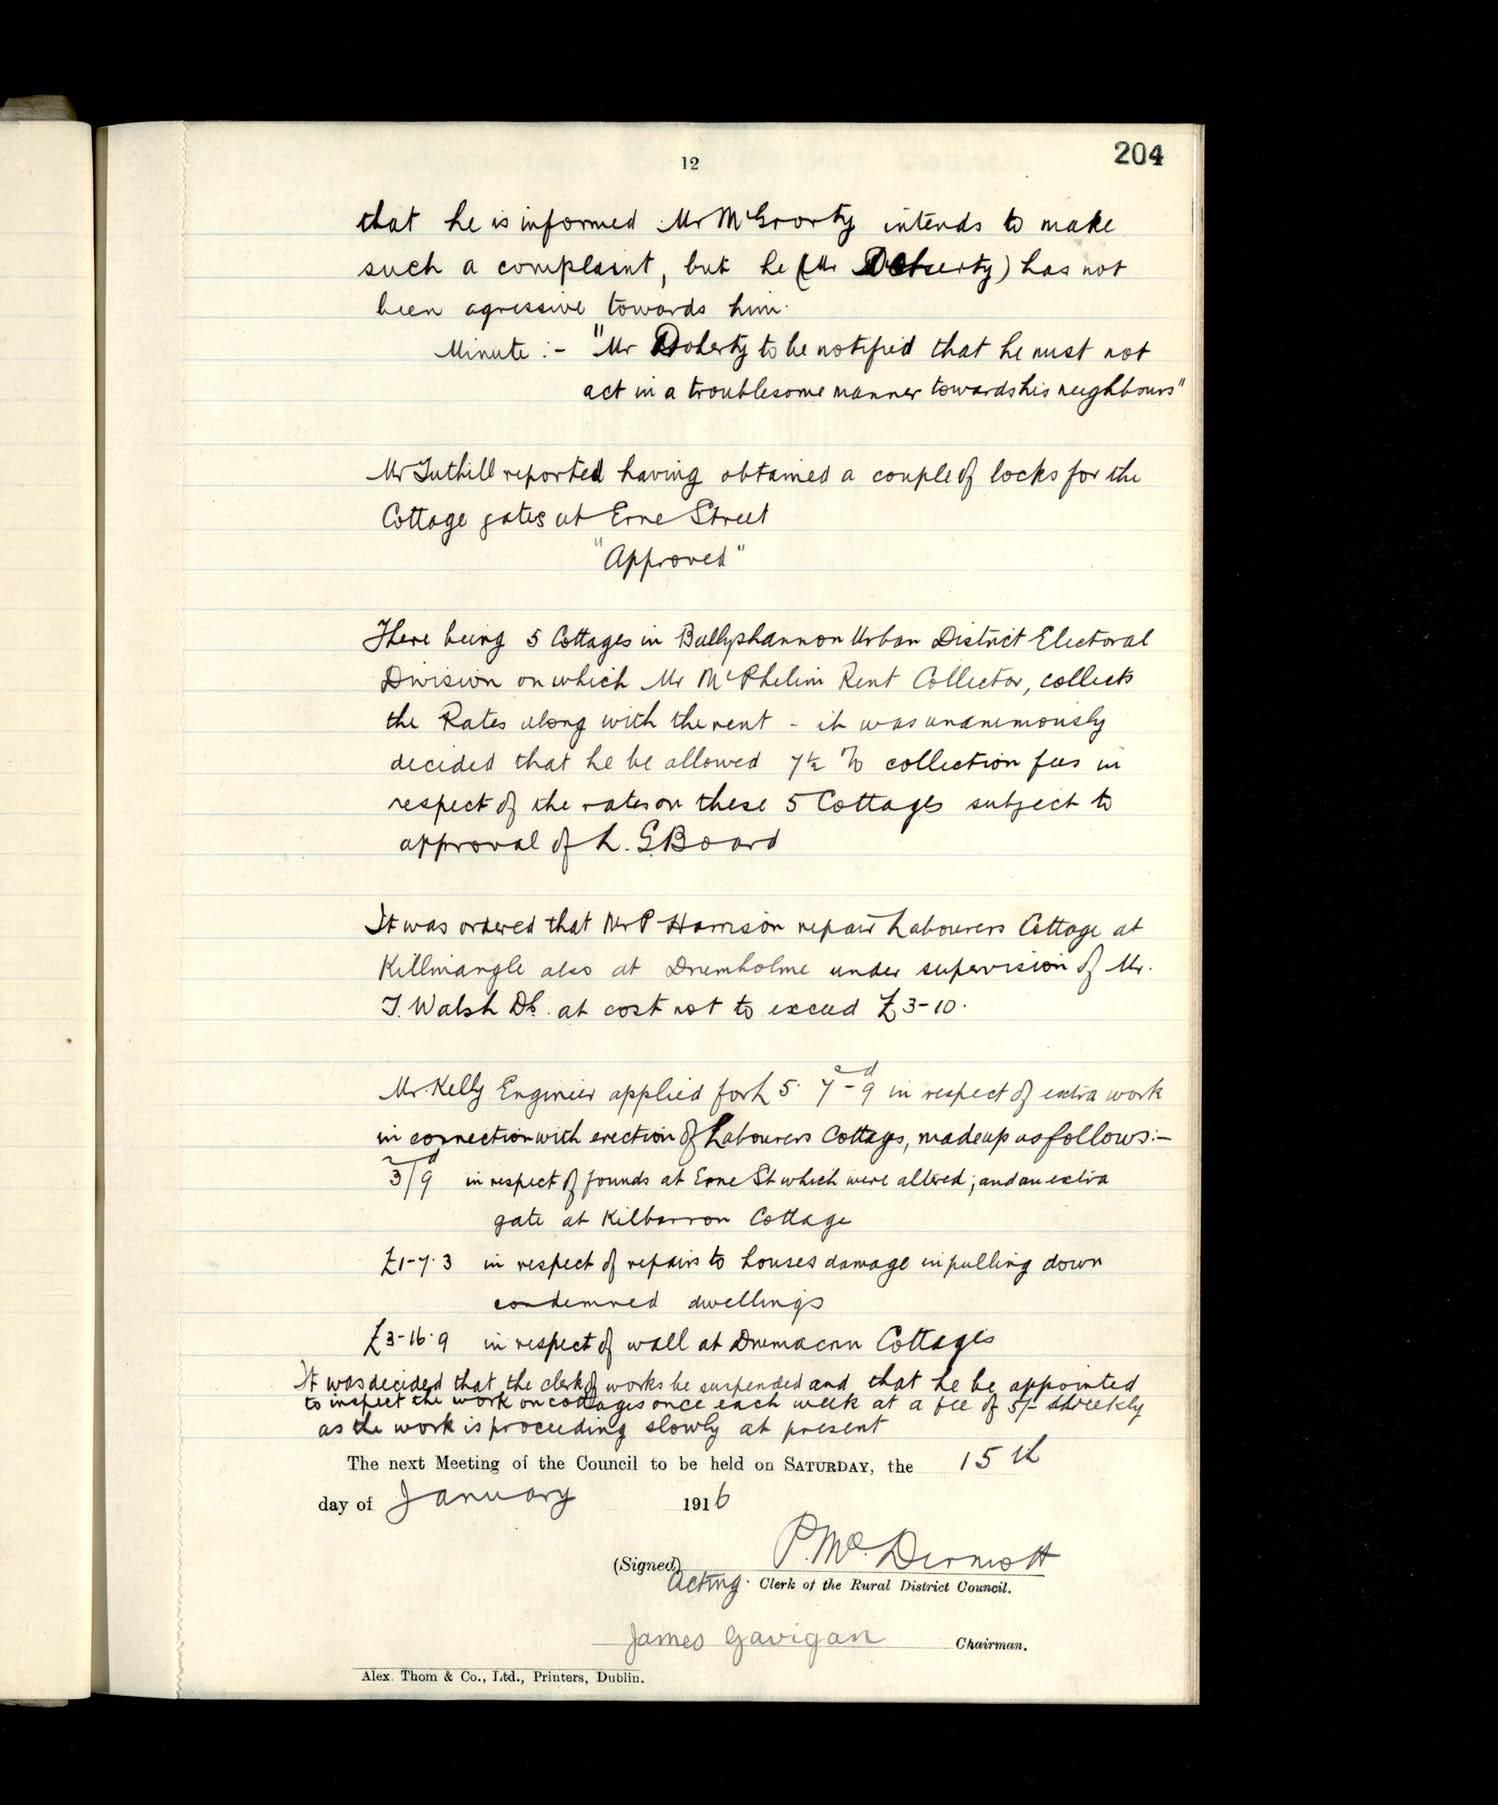 204
12
that he is informed Mr McGrorty intends to make
such a complaint, but he (Mr Doherty) has not
been agressive towards him.
Minute :- "Mr Doherty to be notified that he must not
act in a troublesome manner towards his neighbours"
Mr Tuthill reported having obtained a couple of locks for the
Cottage gates at Erne Street
"Approved"
There being 5 Cottages in Ballyshannon Urban District Electoral
Division on which Mr McPhelim Rent Collector, collects
the Rates along with the rent - it was unanimously
decided that he be allowed 7½ % collection fees in
respect of the rates on these 5 Cottages subject to
approval of L. G. Board
It was ordered that Mr P Harrison repair Labourers Cottage at
Killinangle also at Drumholme under supervision of Mr.
T. Walsh DC. at cost not to exceed £3-10.
Mr. Kelly Engineer applied for £5. 7s-9d in respect of extra work
in connection with erection of Labourers Cottages, made up as follows:-
3s/9d in respect of founds at Erne St which were altered; and an extra
gate at Kilbarron Cottage
£1-7.3 in respect of repairs to houses damage in pulling down
condemned dwellings
£3-16.9 in respect of wall at Drumacrin Cottages
It was decided that the clerk of works be suspended and that he be appointed
to inspect the work on cottages once each week at a fee of 5/- weekly
as the work is proceeding slowly at present
The next Meeting of the Council to be held on SATURDAY, the 15th
day of January 1916
(Signed) P. McDermott
Acting Clerk of the Rural District Council.
James Gavigan Chairman.
Alex. Thom & Co., Ltd., Printers, Dublin.